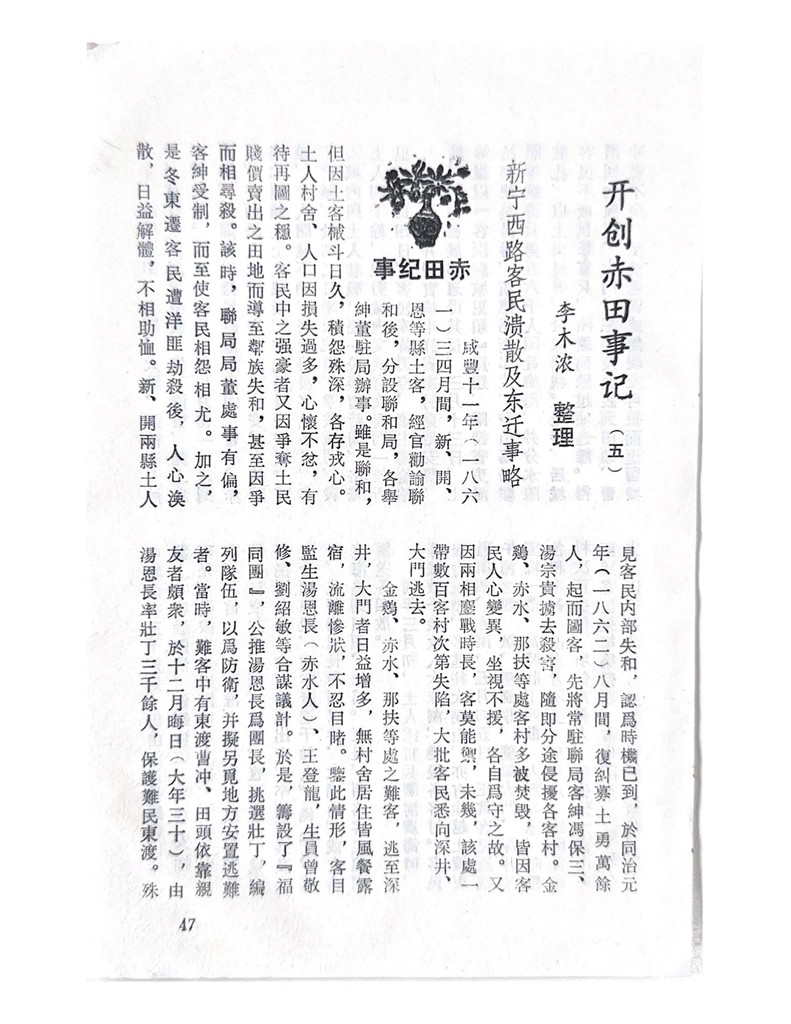 开创赤田事记（五）
李木浓 整理
新宁西路客民溃散及东迁事略
赤田纪事
咸豐十一年（一八六
一）三四月間，新、開、
恩等縣土客，經官勸諭聯
和後，分設聯和局，各舉
紳董駐局辦事。雖是聯和，
但因土客械斗日久，積怨殊深，各存戎心。
土人村舍、人口因損失過多，心懷不忿，有
待再圖之穩。客民中之强豪者又因爭奪土民
賤價賣出之田地而導至鄰族失和，甚至因爭
而相尋殺。該時，聯局局董處事有偏，
客紳受制，而至使客民相怨相尤。加之，
是冬東遷客民遭洋匪劫殺後，人心渙
散，日益解體，不相助恤。新、開兩縣土人
見客民内部失和，認爲時機已到，於同治元
年（一八六二）八月間，復糾募土勇萬餘
人，起而圖客，先將常駐聯局客紳馮保三、
湯宗貴擄去殺害，隨即分途侵擾各客村。金
鷄、赤水、那扶等處客村多被焚毁，皆因客
民人心變異，坐視不援，各自爲守之故。又
因兩相鏖戰時長，客莫能禦，未幾，該處一
帶數百客村次第失陷，大批客民悉向深井、
大門逃去。
金鷄、赤水、那扶等處之難客，逃至深
井，大門者日益增多，無村舍居住皆風餐露
宿，流離惨狀，不忍目睹。鑒此情形，客目
監生湯恩長（赤水人）、王登龍，生員曾敬
修、劉紹敏等合謀議計。於是，籌設了『福
同團』，公推湯恩長爲團長，挑選壯丁，編
列隊伍，以爲防衛，并擬另覓地方安置逃難
者。當時，難客中有東渡曹冲、田頭依靠親
友者頗衆，於十二月晦日（大年三十），由
湯恩長率壯丁三千餘人，保護難民東渡。殊
47